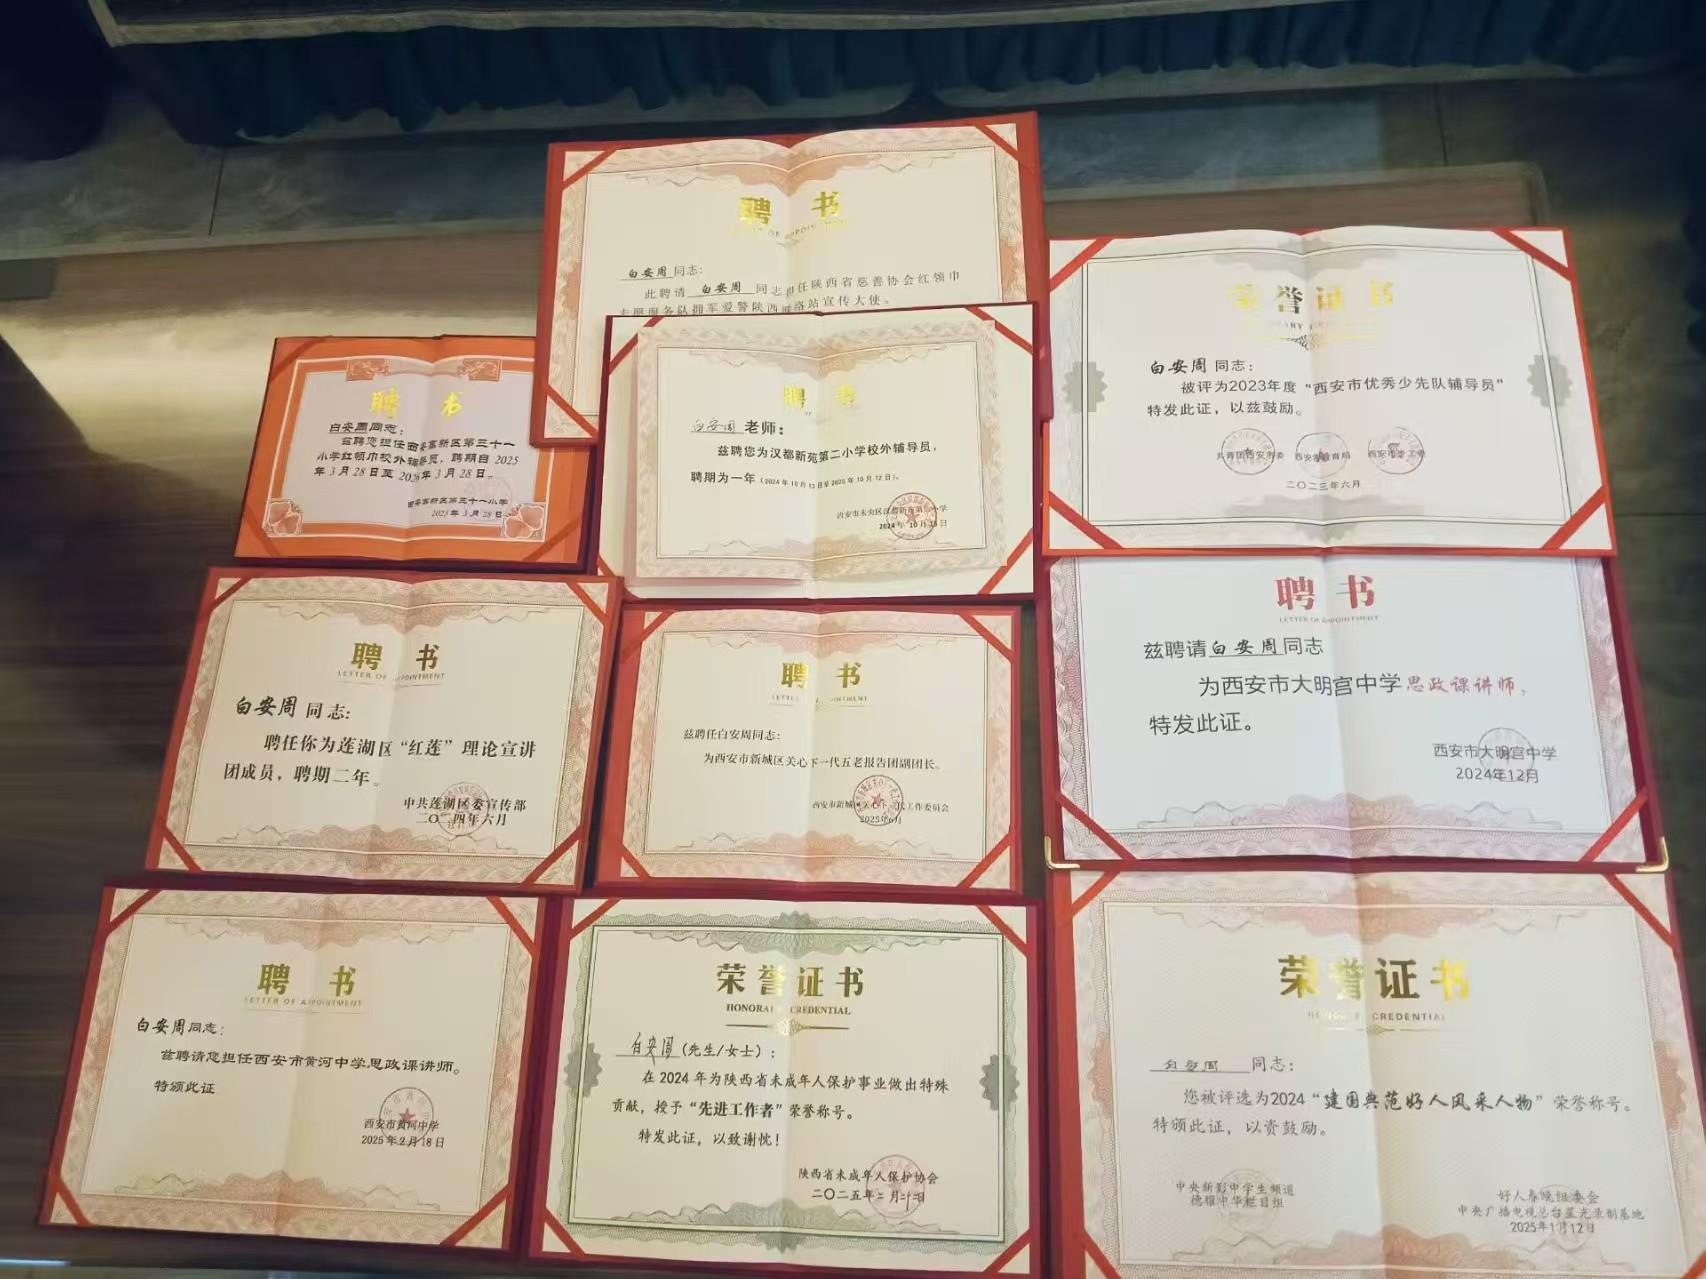 聘书
白安周同志:
此聘请 白安周 同志担任陕西省慈善协会红领巾
志愿服务队拥军爱警陕西联络站宣传大使。
聘书
白安周同志:
兹聘您担任西安高新区第三十一
小学红领巾校外辅导员,聘期自2025
年3月28日至2026年3月28日。
西安高新区第三十一小学
2025年3月28日
聘书
白安周 老师:
兹聘您为汉都新苑第二小学校外辅导员,
聘期为一年(2024年10月13日至2025年10月12日)。
西安市未央区汉都新苑第二小学
2024年10月13日
荣誉证书
白安周 同志:
被评为2023年度“西安市优秀少先队辅导员”
特发此证,以兹鼓励。
共青团西安市委 西安市教育局 西安市少工委
二〇二三年六月
聘书
LETTER OF APPOINTMENT
白安周 同志:
聘任你为莲湖区“红莲”理论宣讲
团成员,聘期二年。
中共莲湖区委宣传部
二〇二四年六月
聘书
LETTER OF APPOINTMENT
兹聘任白安周同志:
为西安市新城区关心下一代五老报告团副团长。
西安市新城区关心下一代工作委员会
2025年6月
聘书
LETTER OF APPOINTMENT
兹聘请白安周同志
为西安市大明宫中学思政课讲师,
特发此证。
西安市大明宫中学
2024年12月
聘书
LETTER OF APPOINTMENT
白安周同志:
兹聘请您担任西安市黄河中学思政课讲师。
特颁此证
西安市黄河中学
2025年2月18日
荣誉证书
HONORARY CREDENTIAL
白安周(先生/女士):
在2024年为陕西省未成年人保护事业做出特殊
贡献,授予“先进工作者”荣誉称号。
特发此证,以致谢忱!
陕西省未成年人保护协会
荣誉证书
HONORARY CREDENTIAL
白安周 同志:
您被评选为2024“建国典范好人风采人物”荣誉称号。
特颁此证,以资鼓励。
中央新影中学生频道
德耀中华栏目组
好人春晚组委会
中央广播电视总台星光录制基地
2025年1月12日